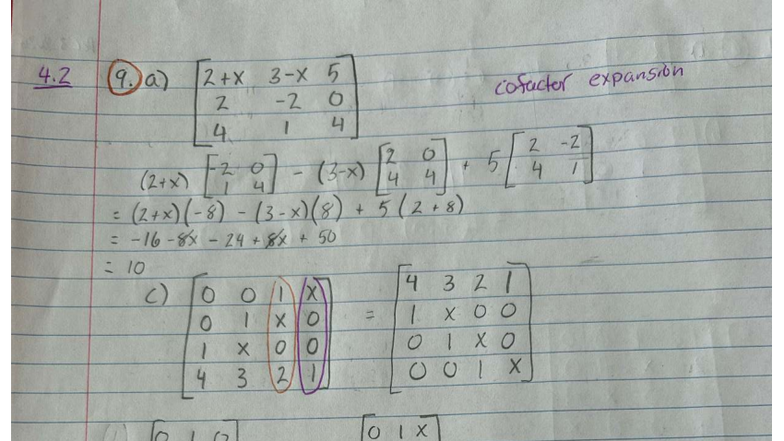 4.2 9. a) [2+x 3-x 5
2 -2 0
4 1 4]
cofactor expansion
(2+x) [-2 0
1 4] - (3-x) [2 0
4 4] + 5 [2 -2
4 1]
= (2+x)(-8) - (3-x)(8) + 5(2+8)
= -16-8x - 24 + 8x + 50
= 10
c) [0 0 1 x
0 1 x 0
1 x 0 0
4 3 2 1] = [4 3 2 1
1 x 0 0
0 1 x 0
0 0 1 x]
[0 1 x]